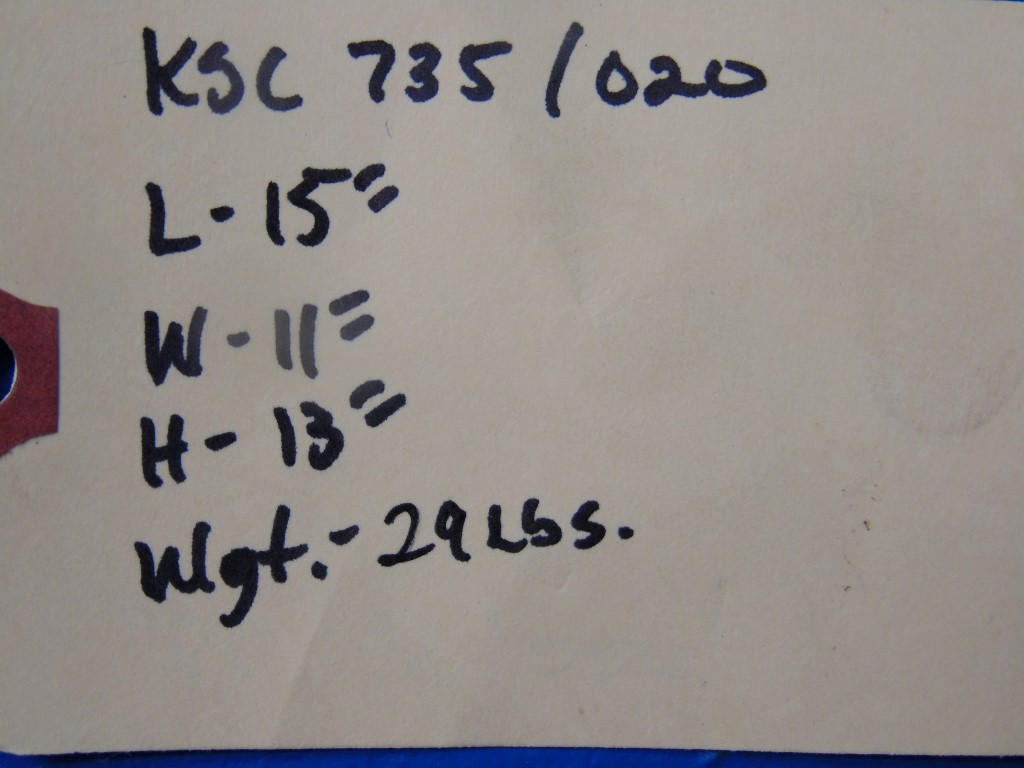 KSC 735 / 020
L - 15"
W - 11"
H - 13"
Wgt. - 29 Lbs.